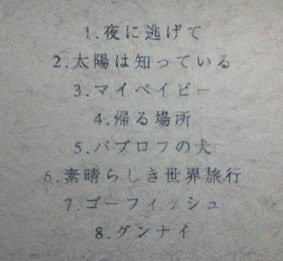 1.夜に逃げて
2.太陽は知っている
3.マイベイビー
4.帰る場所
5.パブロフの犬
6.素晴らしき世界旅行
7.ゴーフィッシュ
8.グンナイ